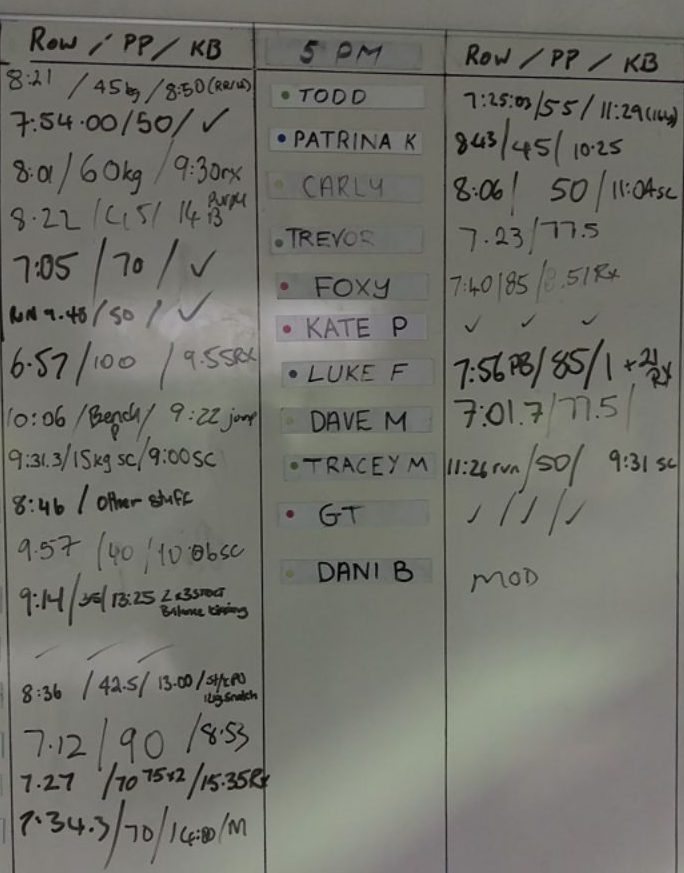 Row / PP / KB
8:21 / 45kg / 8:50
7:54.00/50/ ✓
8:01 / 60kg / 9:30rx
8.22 / 14
7:05 / 70 / ✓
9.48/ 50 / ✓
6.57 /100 / 9.55RX
10:06 /Bench/ 9:22 jump
P
9:31.3/15kg sc/9:00sc
8:46 / Other stuff
9.57 /40 /10:06sc
9:14/35/ 13:25
8:36 / 42.5/ 13.00/
7.12 / 90 / 8.53
7.27 /70 75x2 /15.35RX
7:34.3/70/14:00/M
5 PM
TODD
PATRINA K
CARLY
TREVOR
FOXY
KATE P
LUKE F
DAVE M
TRACEY M
GT
DANI B
Row / PP / KB
7:25:03/55/ 11:29
8:43/45/ 10.25
8:06/ 50 /11:04sc
7.23/77.5
7:40/85 /8.51Rx
✓ ✓ ✓
7:56 PB/ 85/1 + 21 RX
7:01.7/77.5/
11:26 run/50/ 9:31 sc
✓/✓/✓
MOD